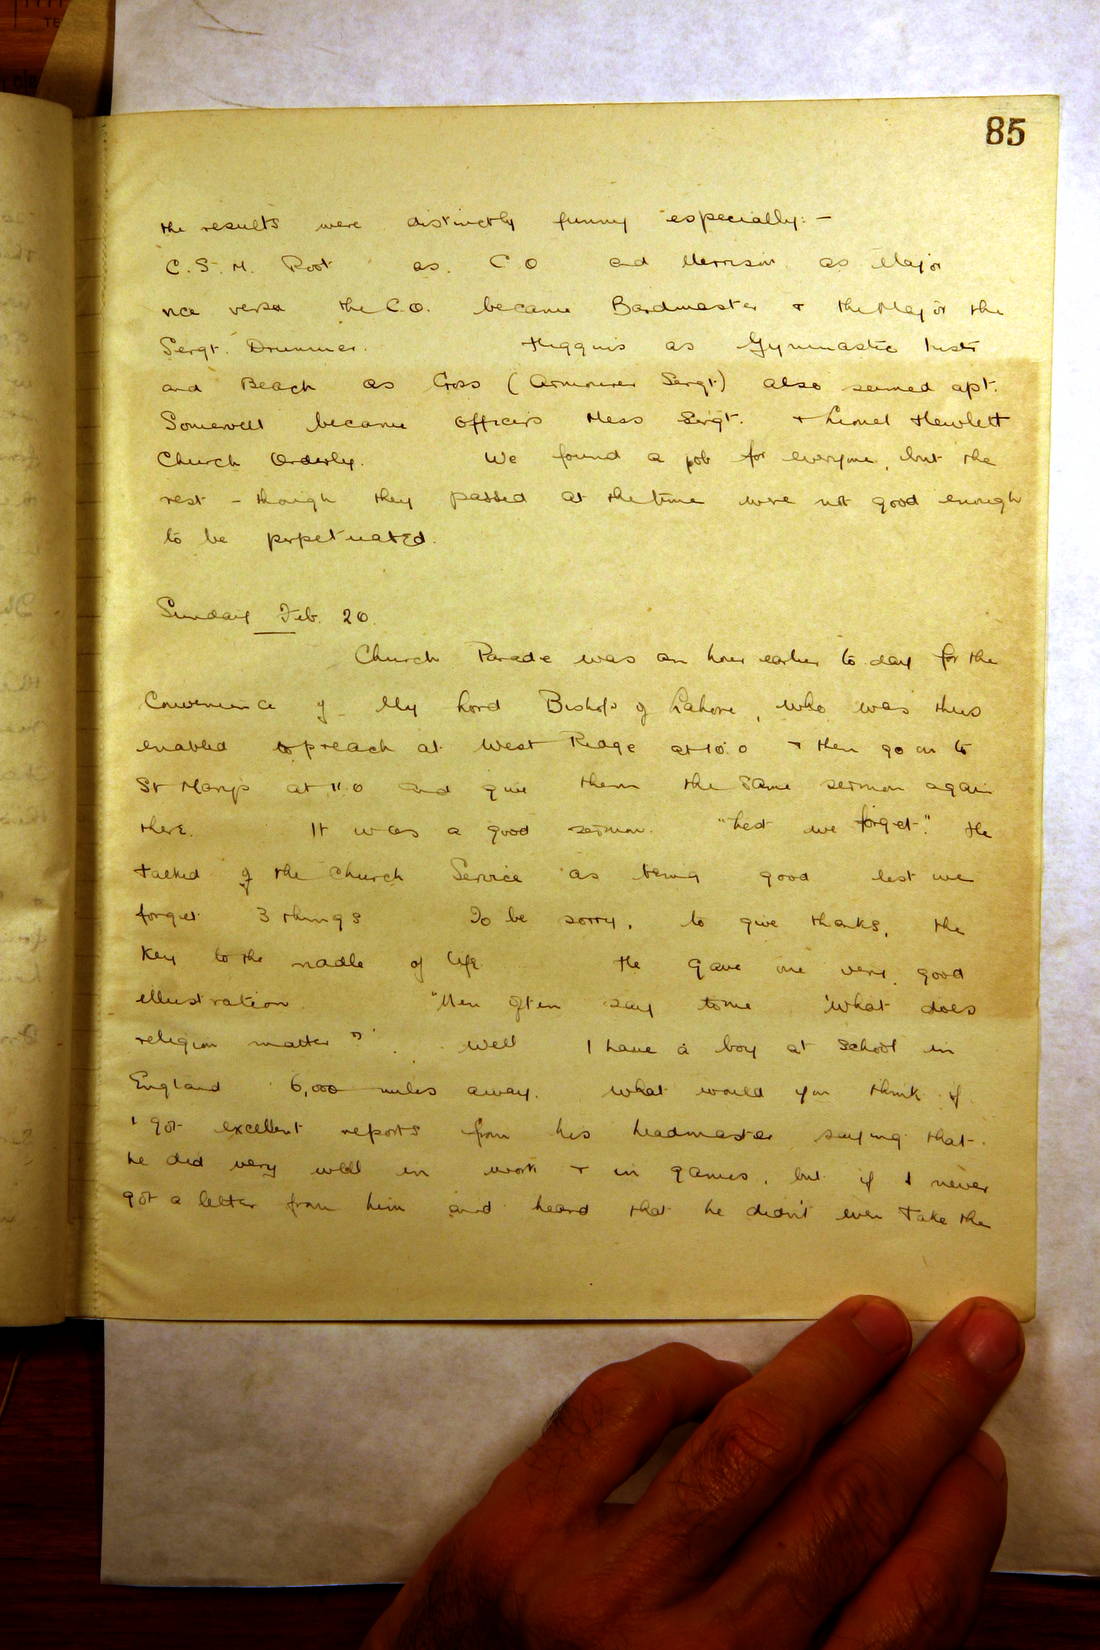 85
the results were distinctly funny especially:-
C.S.M. Root as C O and Merrison as Major
vice versa the C.O. became Bandmaster + the Major the
Sergt. Drummer. Higgins as Gymnastic Instr
and Beach as Cross (Armourer Sergt) also seemed apt.
Somervell became Officers Mess Sergt. + Lionel Hewlett
Church Orderly. We found a job for everyone, but the
rest - though they passed at the time were not good enough
to be perpetuated.
Sunday Feb. 20.
Church Parade was an hour earlier to day for the
Convenience of My Lord Bishop of Lahore, who was thus
enabled to preach at West Ridge at 10.0 + then go on to
St Marys at 11.0 and give them the same sermon again
there. It was a good sermon. "Lest we forget." He
talked of the Church Service as being good lest we
forget 3 things To be sorry, to give thanks, the
Key to the riddle of life He gave one very good
illustration "Men often say to me 'What does
religion matter?' Well I have a boy at School in
England 6,000 miles away. What would you think if
I got excellent reports from his headmaster saying that
he did very well in work + in games, but if I never
got a letter from him and heard that he didn't even take the